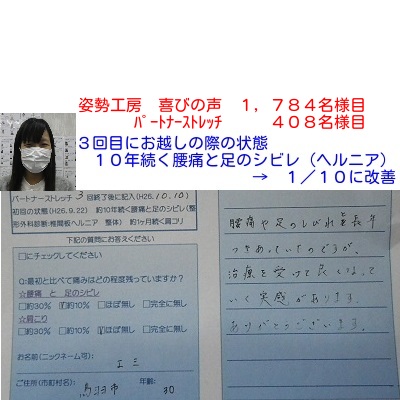 姿勢工房 喜びの声 １，７８４名様目
ﾊﾟｰﾄﾅｰｽﾄﾚｯﾁ ４０８名様目
３回目にお越しの際の状態
１０年続く腰痛と足のシビレ（ヘルニア）
→ １／１０に改善
パートナーストレッチ 3 回終了後に記入(H26.10.10)
初回の状態(H26.9.22) 約10年続く腰痛と足のシビレ(整
形外科診断:椎間板ヘルニア 整体) 約1ヶ月続く肩コリ
下記の質問にお答えください
□にチェックしてください
Q:最初と比べて痛みはどの程度残っていますか?
☆腰痛 と 足のシビレ
□約30% ☑約10% □ほぼ無し □完全に無し
☆肩こり
□約30% □約10% ☑ほぼ無し □完全に無し
お名前(ニックネーム可):
ご住所(市町村名): 鳥羽市 年齢: 30
腰痛や足のしびれと長年
つきあっていたのですが、
治療を受けて良くなって
いく実感があります。
ありがとうございます。